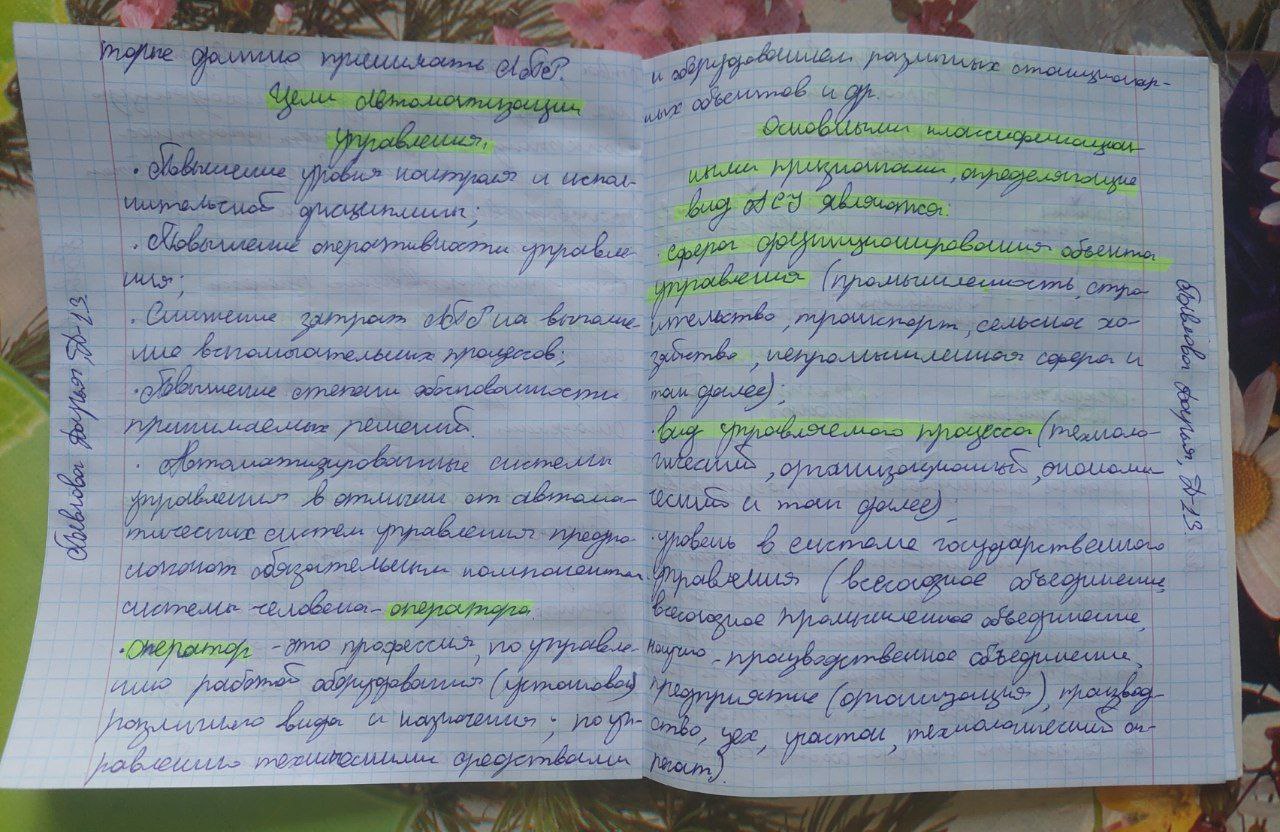 торые должно принимать ЛПР.
Цели автоматизации
управления.
· Повышение уровня контроля и испол-
нительской дисциплины;
· Повышение оперативности управле-
ния;
· Снижение затрат ЛПР на выполне-
ние вспомагательных процессов;
· Повышение степени обоснованности
принимаемых решений.
· Автоматизированные системы
управления в отличии от автома-
тических систем управления предпо-
логают обязательным компонентом
системы человека - оператора.
· Оператор - это профессия, по управле-
нию работой оборудования (установок)
различного вида и назначения; по уп-
равлению техническими средствами
Павлова Дарья, Д-13
и оборудованием различных стационар-
ных объектов и др.
Основными классификацион
ными признаками, определяющие
вид АСУ являются:
· сфера функционирования объекта
управления (промышленность, стро
ительство, транспорт, сельское хо-
зяйство, непромышленная сфера и
так далее);
· вид управляемого процесса (техноло-
гический, организационный, экономи
ческий и так далее);
· уровень в системе государственного
управления (всесоюзное объединение
всесоюзное промышленное объединение,
научно - производственное объединение,
предприятие (организация), производ-
ство, цех, участок, технологический аг-
регат).
Павлова Дарья, Д-13.